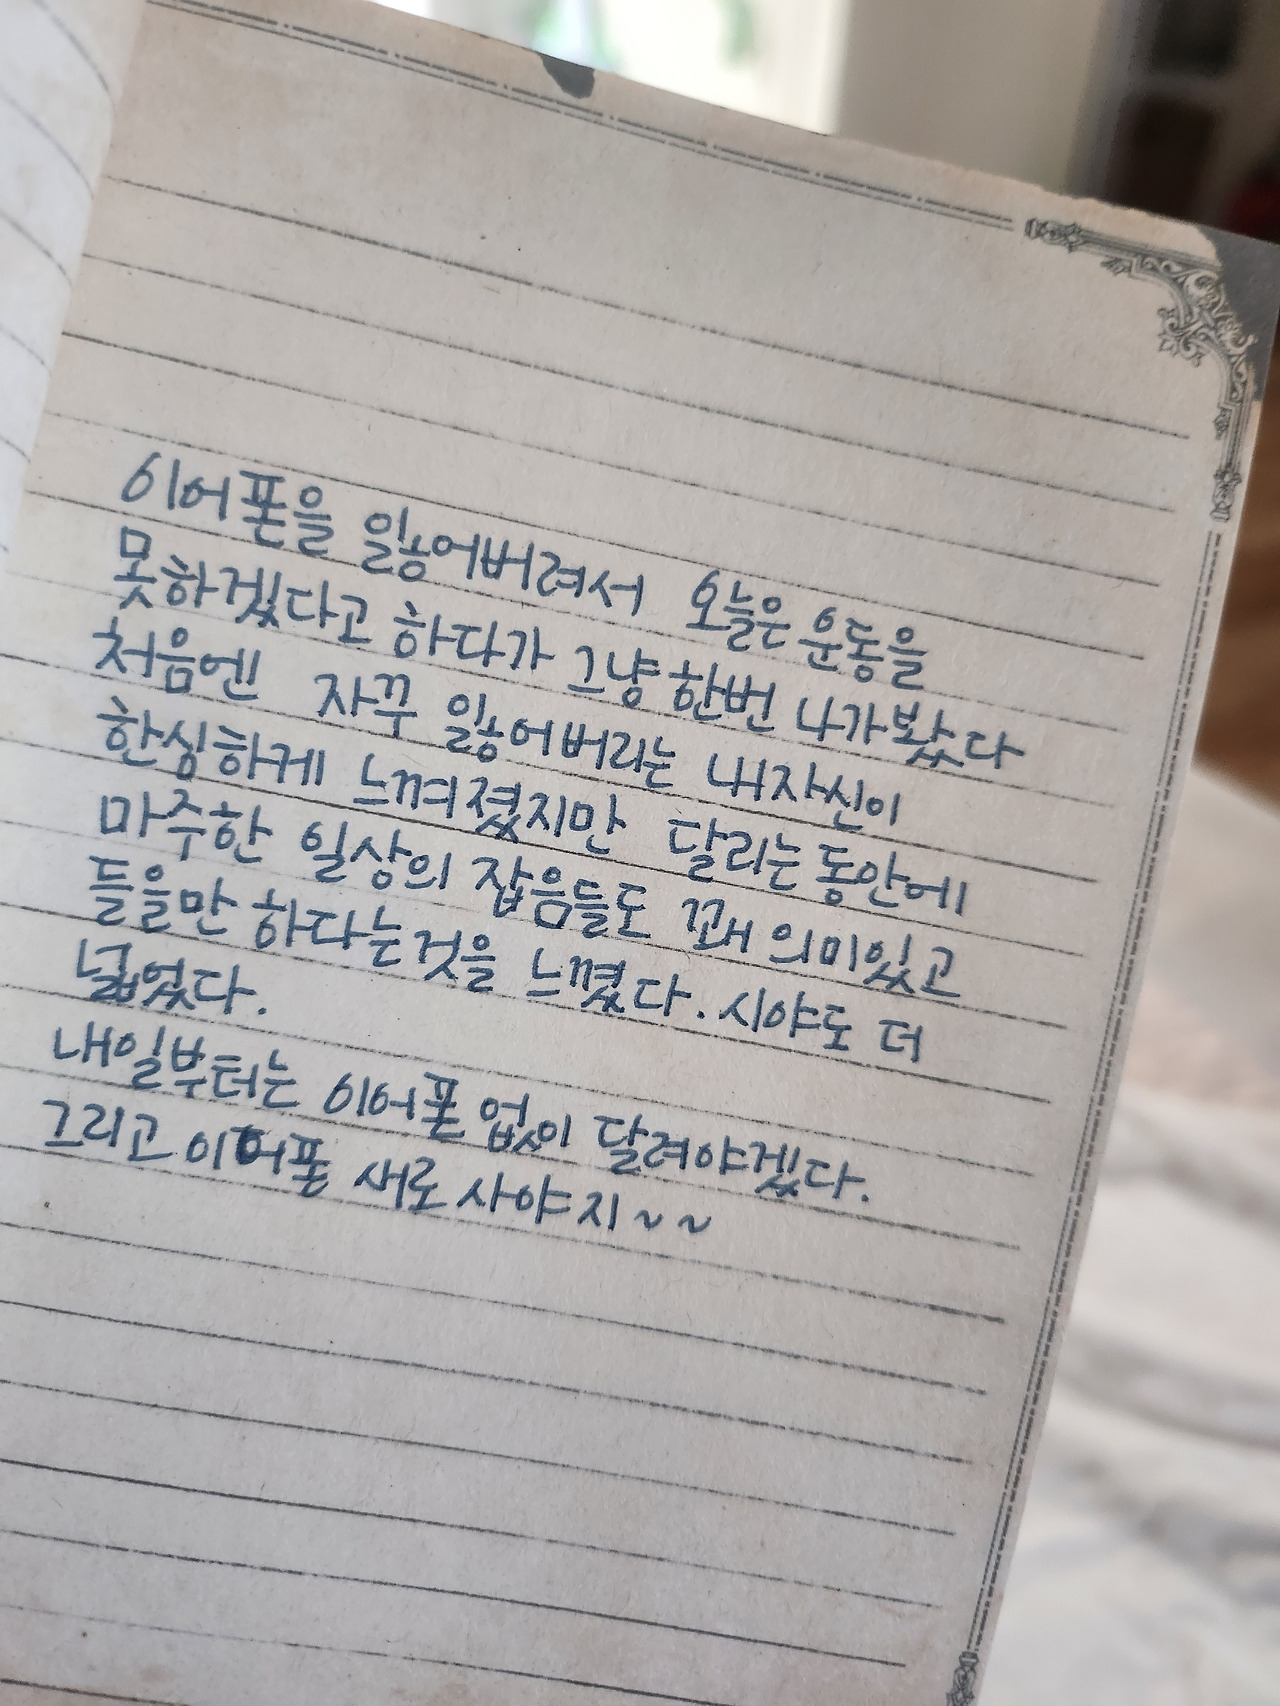 이어폰을 잃어버려서 오늘은 운동을
못하겠다고 하다가 그냥 한번 나가봤다
처음엔 자꾸 잃어버리는 내자신이
한심하게 느껴졌지만 달리는 동안에
마주한 일상의 잡음들도 꽤 의미있고
들을만 하다는것을 느꼈다. 시야도 더
넓었다.
내일부터는 이어폰 없이 달려야겠다.
그리고 이어폰 새로 사야지~~